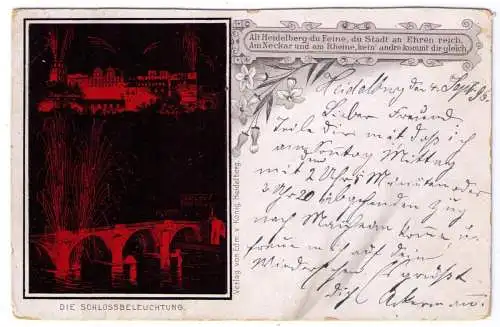 Alt Heidelberg du Feine, du Stadt an Ehren reich,
Am Neckar und am Rheine, kein' andre kommt dir gleich.
Heidelberg den 4. Sept. 98.
Lieber Freund
Teile Dir mit daß ich
am Sonntag Mittag
mit 2 Uhr 5 Minuten oder
3 Uhr 20 abgehenden Zug
nach komme u.
freue mich auf dein
Wiedersehen Es grüßt
dich Ackermann.
Verlag von Edm. v. König, Heidelberg.
DIE SCHLOSSBELEUCHTUNG.